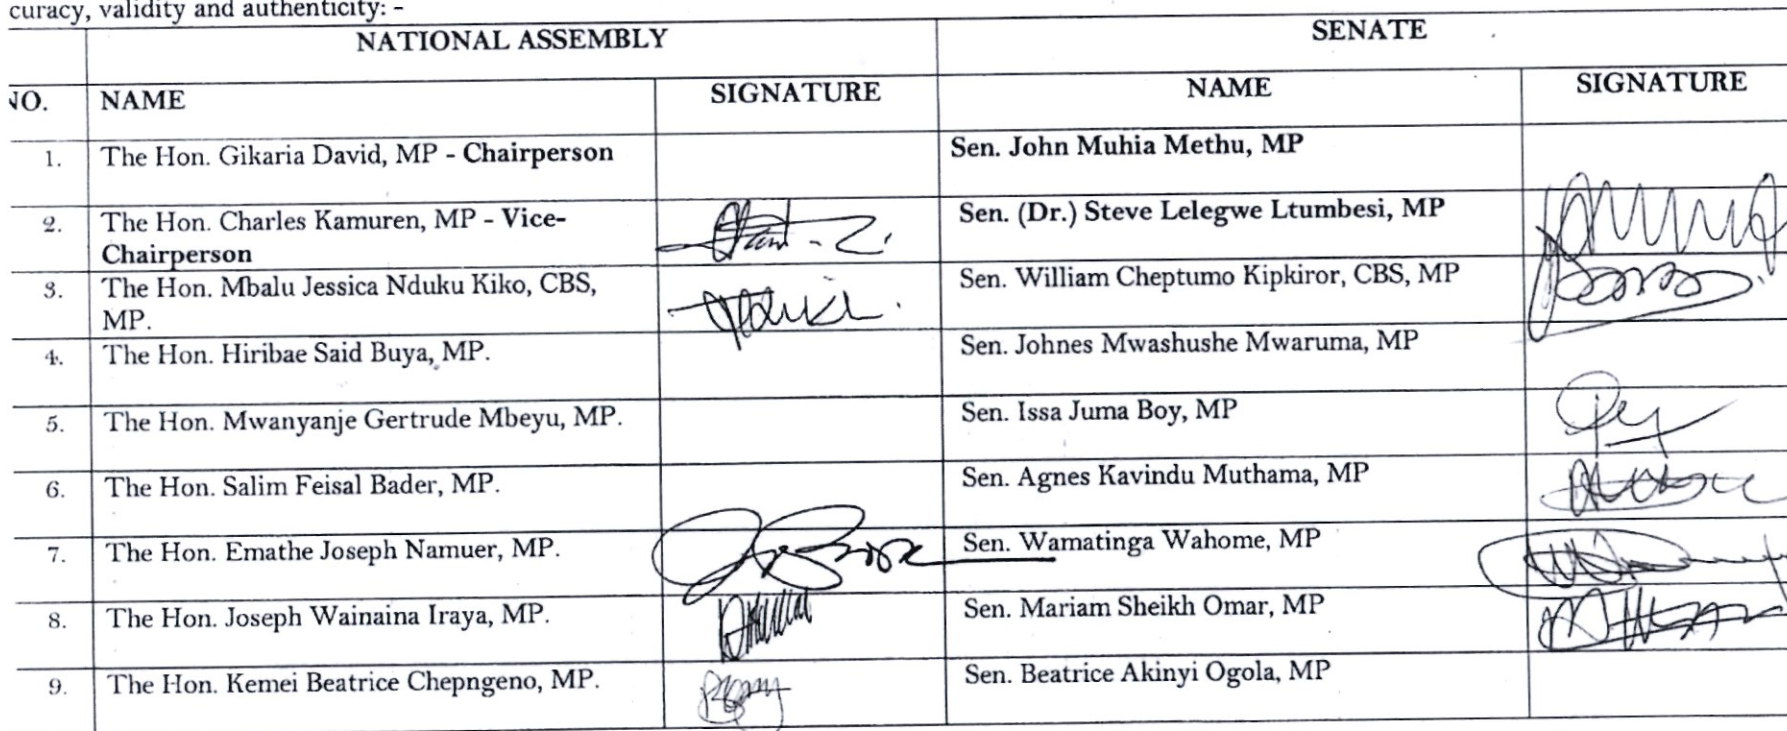 curacy, validity and authenticity: -
NATIONAL ASSEMBLY SENATE
NO. NAME SIGNATURE NAME SIGNATURE
1. The Hon. Gikaria David, MP - Chairperson Sen. John Muhia Methu, MP
2. The Hon. Charles Kamuren, MP - Vice- Sen. (Dr.) Steve Lelegwe Ltumbesi, MP
Chairperson
3. The Hon. Mbalu Jessica Nduku Kiko, CBS, Sen. William Cheptumo Kipkiror, CBS, MP
MP.
4. The Hon. Hiribae Said Buya, MP. Sen. Johnes Mwashushe Mwaruma, MP
5. The Hon. Mwanyanje Gertrude Mbeyu, MP. Sen. Issa Juma Boy, MP
6. The Hon. Salim Feisal Bader, MP. Sen. Agnes Kavindu Muthama, MP
7. The Hon. Emathe Joseph Namuer, MP. Sen. Wamatinga Wahome, MP
8. The Hon. Joseph Wainaina Iraya, MP. Sen. Mariam Sheikh Omar, MP
9. The Hon. Kemei Beatrice Chepngeno, MP. Sen. Beatrice Akinyi Ogola, MP